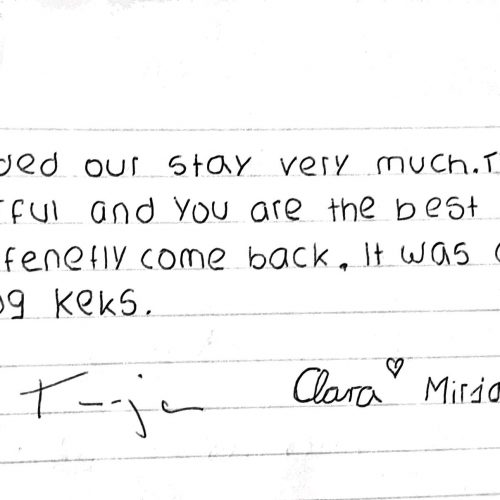 yed our stay very much. T
rful and you are the best
fenetly come back. It was
og keks.
Clara ♡ Miria